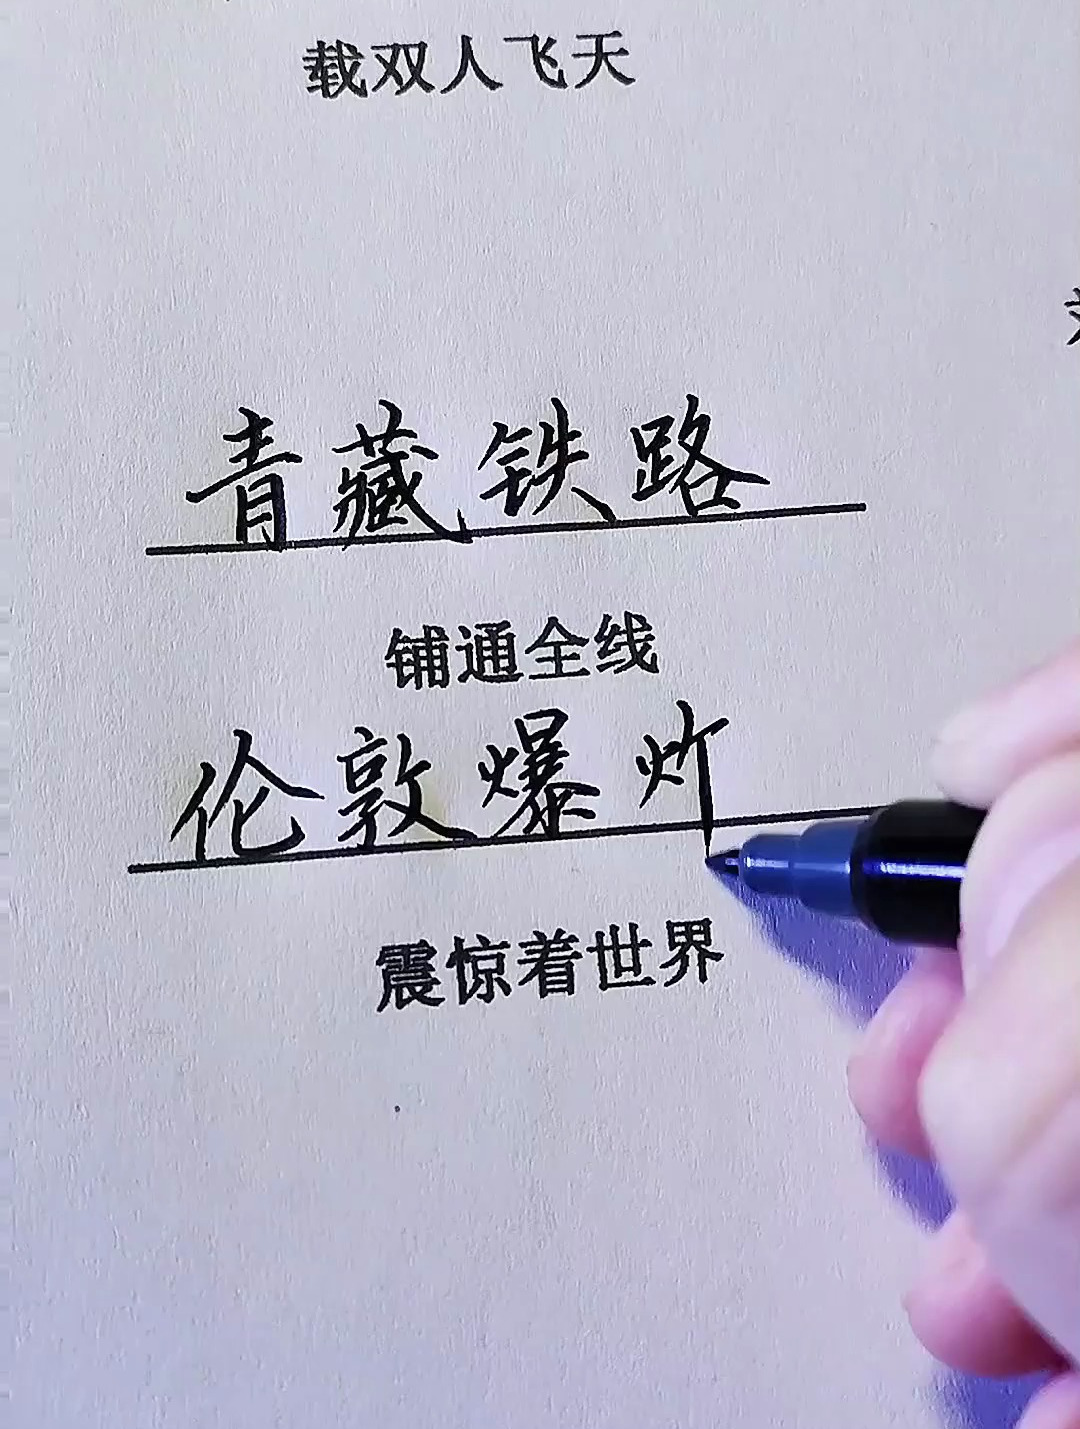 载双人飞天
青藏铁路
铺通全线
伦敦爆炸
震惊着世界